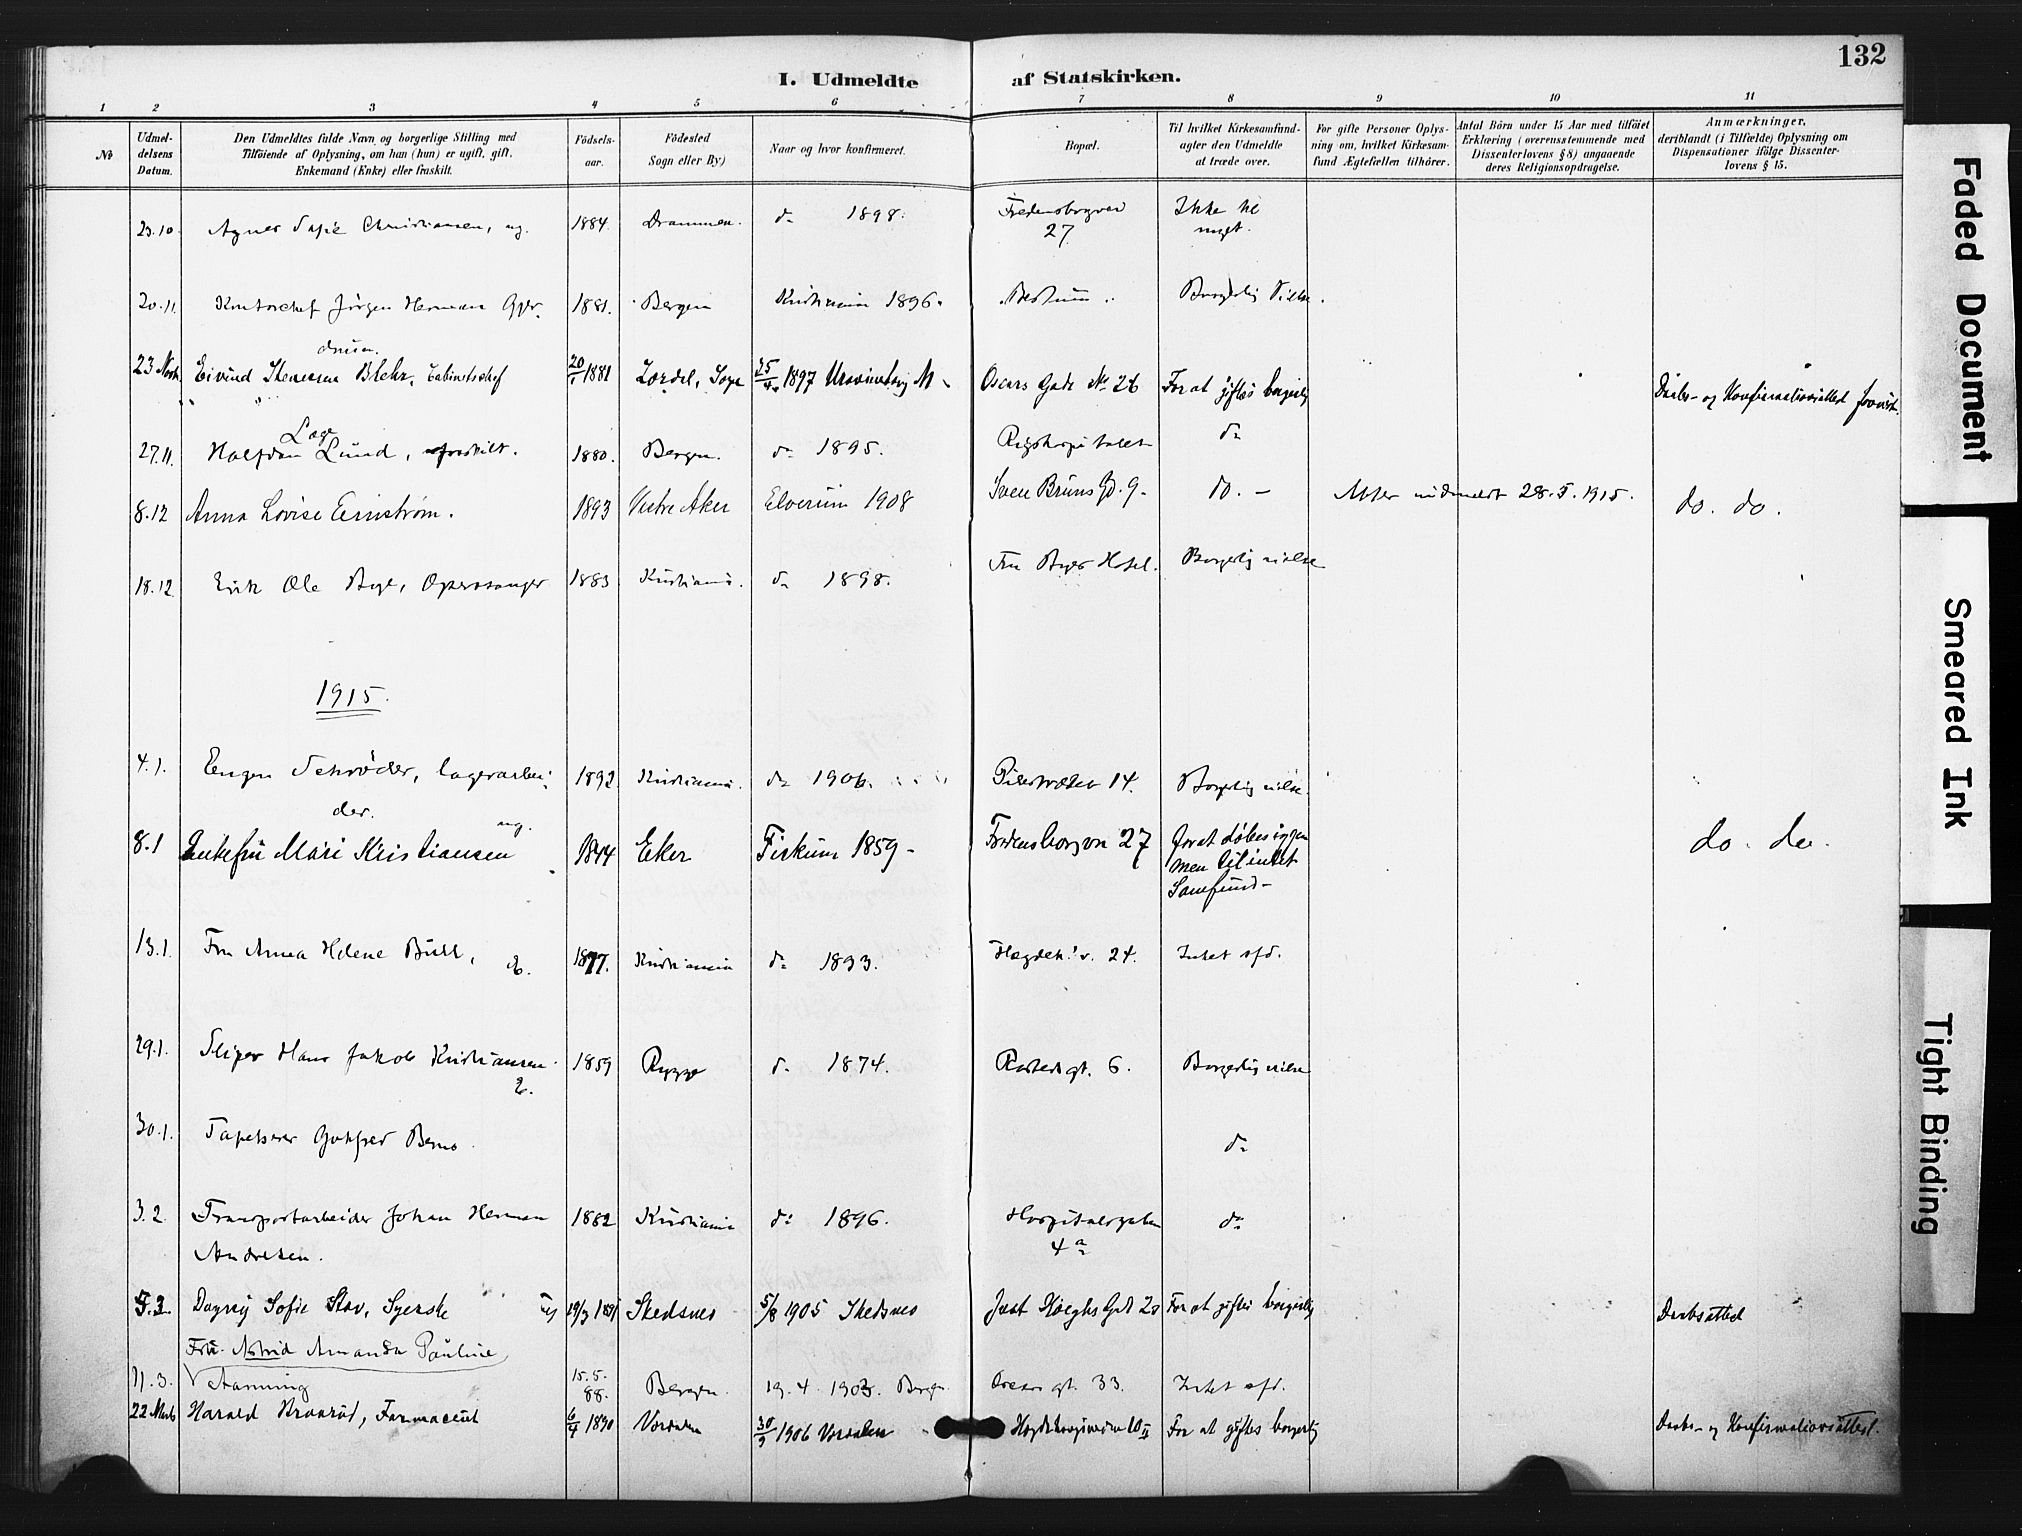 132
I. Udmeldte af Statskirken.
1 2 3 4 5 6 7 8 9 10 11
No
Udmel-
delsens
Datum.
Den Udmeldtes fulde Navn og borgerlige Stilling med
Tilföiende af Oplysning, om han (hun) er ugift, gift,
Enkemand (Enke) eller fraskilt.
Födsels-
aar.
Födested
Sogn eller By)
Naar og hvor konfirmeret.
Bopæl.
Til hvilket Kirkesamfund-
agter den Udmeldte
at træde over.
For gifte Personer Oplys-
ning om, hvilket Kirkesam-
fund Ægtefællen tilhörer.
Antal Börn under 15 Aar med tilföiet
Erklæring (overensstemmende med
Dissenterlovens § 8) angaaende
deres Religionsopdragelse.
Anmærkninger,
deriblandt (i Tilfælde) Oplysning om
Dispensationer ifölge Dissenter-
lovens § 15.
23.10 Agnes Christiansen, ug. 1884. Drammen. do 1898. Fredensborgvei 27 Ikke til
20.11. Kontorchef Jörgen Herman 1881. Bergen Kristiania 1896. Bestum Borgerlig Vielse.
23 Novb. Eivind Stenersen Blehr, Cabinetschef 20/1 1881 Lærdal, Sogn 25/4 1897 Oscars Gade No 26 For at giftes borgerlig Daabs- og Konfirmationsattest forevist.
27.11. Halfdan Lage Lund, fraskilt. 1880. Bergen. do 1895. Rigshospitalet do
8.12 Anna Lovise Ernström. 1893 Vestre Aker Elverum 1908 Sven Bruns Gd. 9. do. - Atter indmeldt 28.5.1915. do. do.
18.12. Erik Ole Bye, Operasanger 1883 Kristiania. do 1898. Fru Byes Hotel. Borgerlig vielse
1915.
4.1. Eugen Schröder, lagerarbei-
der. ug. 1892 Kristiania. do 1906. Pilestrædet 14. Borgerlig vielse.
8.1 Enkefru Mari Kristiansen 1844 Eker Fiskum 1859 - Fredensborgvn 27 for at döbes igjen
men til intet
Samfund -
do. do.
13.1. Fru Anna Helene Bull, E. 1877. Kristiania do 1893. Hægdeh.v. 24. Intet opg.
29.1. Sliper Hans Jakob Kristiansen. E. 1859 Rygge do 1874. Rosteds gt. 6. Borgerlig vielse
30.1. Tapetserer Gotfred Berno. do
3.2. Transportarbeider Johan Herman
Andresen. 1882 Kristiania do 1896. Hospitalsgaten
4a do
5.3. Dagny Sofie Stav, Syerske 19/3 1891 Skedsmo 5/8 1905 Skedsmo Just Höeghs Gd 20 For at giftes borgerlig Daabsattest
Fru Astrid Amanda Pauline
11.3. Vetaming 15.5.
88. Bergen. 19.4.1903. Bergen. Oscars gt. 33. Intet opg.
22 Marts Harald Braarud, Farmaceut 6/4 1890 Værdalen 30/9 1906 Værdalen For at giftes borgerlig Daabs- og Konfirmationsattest.
Faded Document
Smeared Ink
Tight Binding